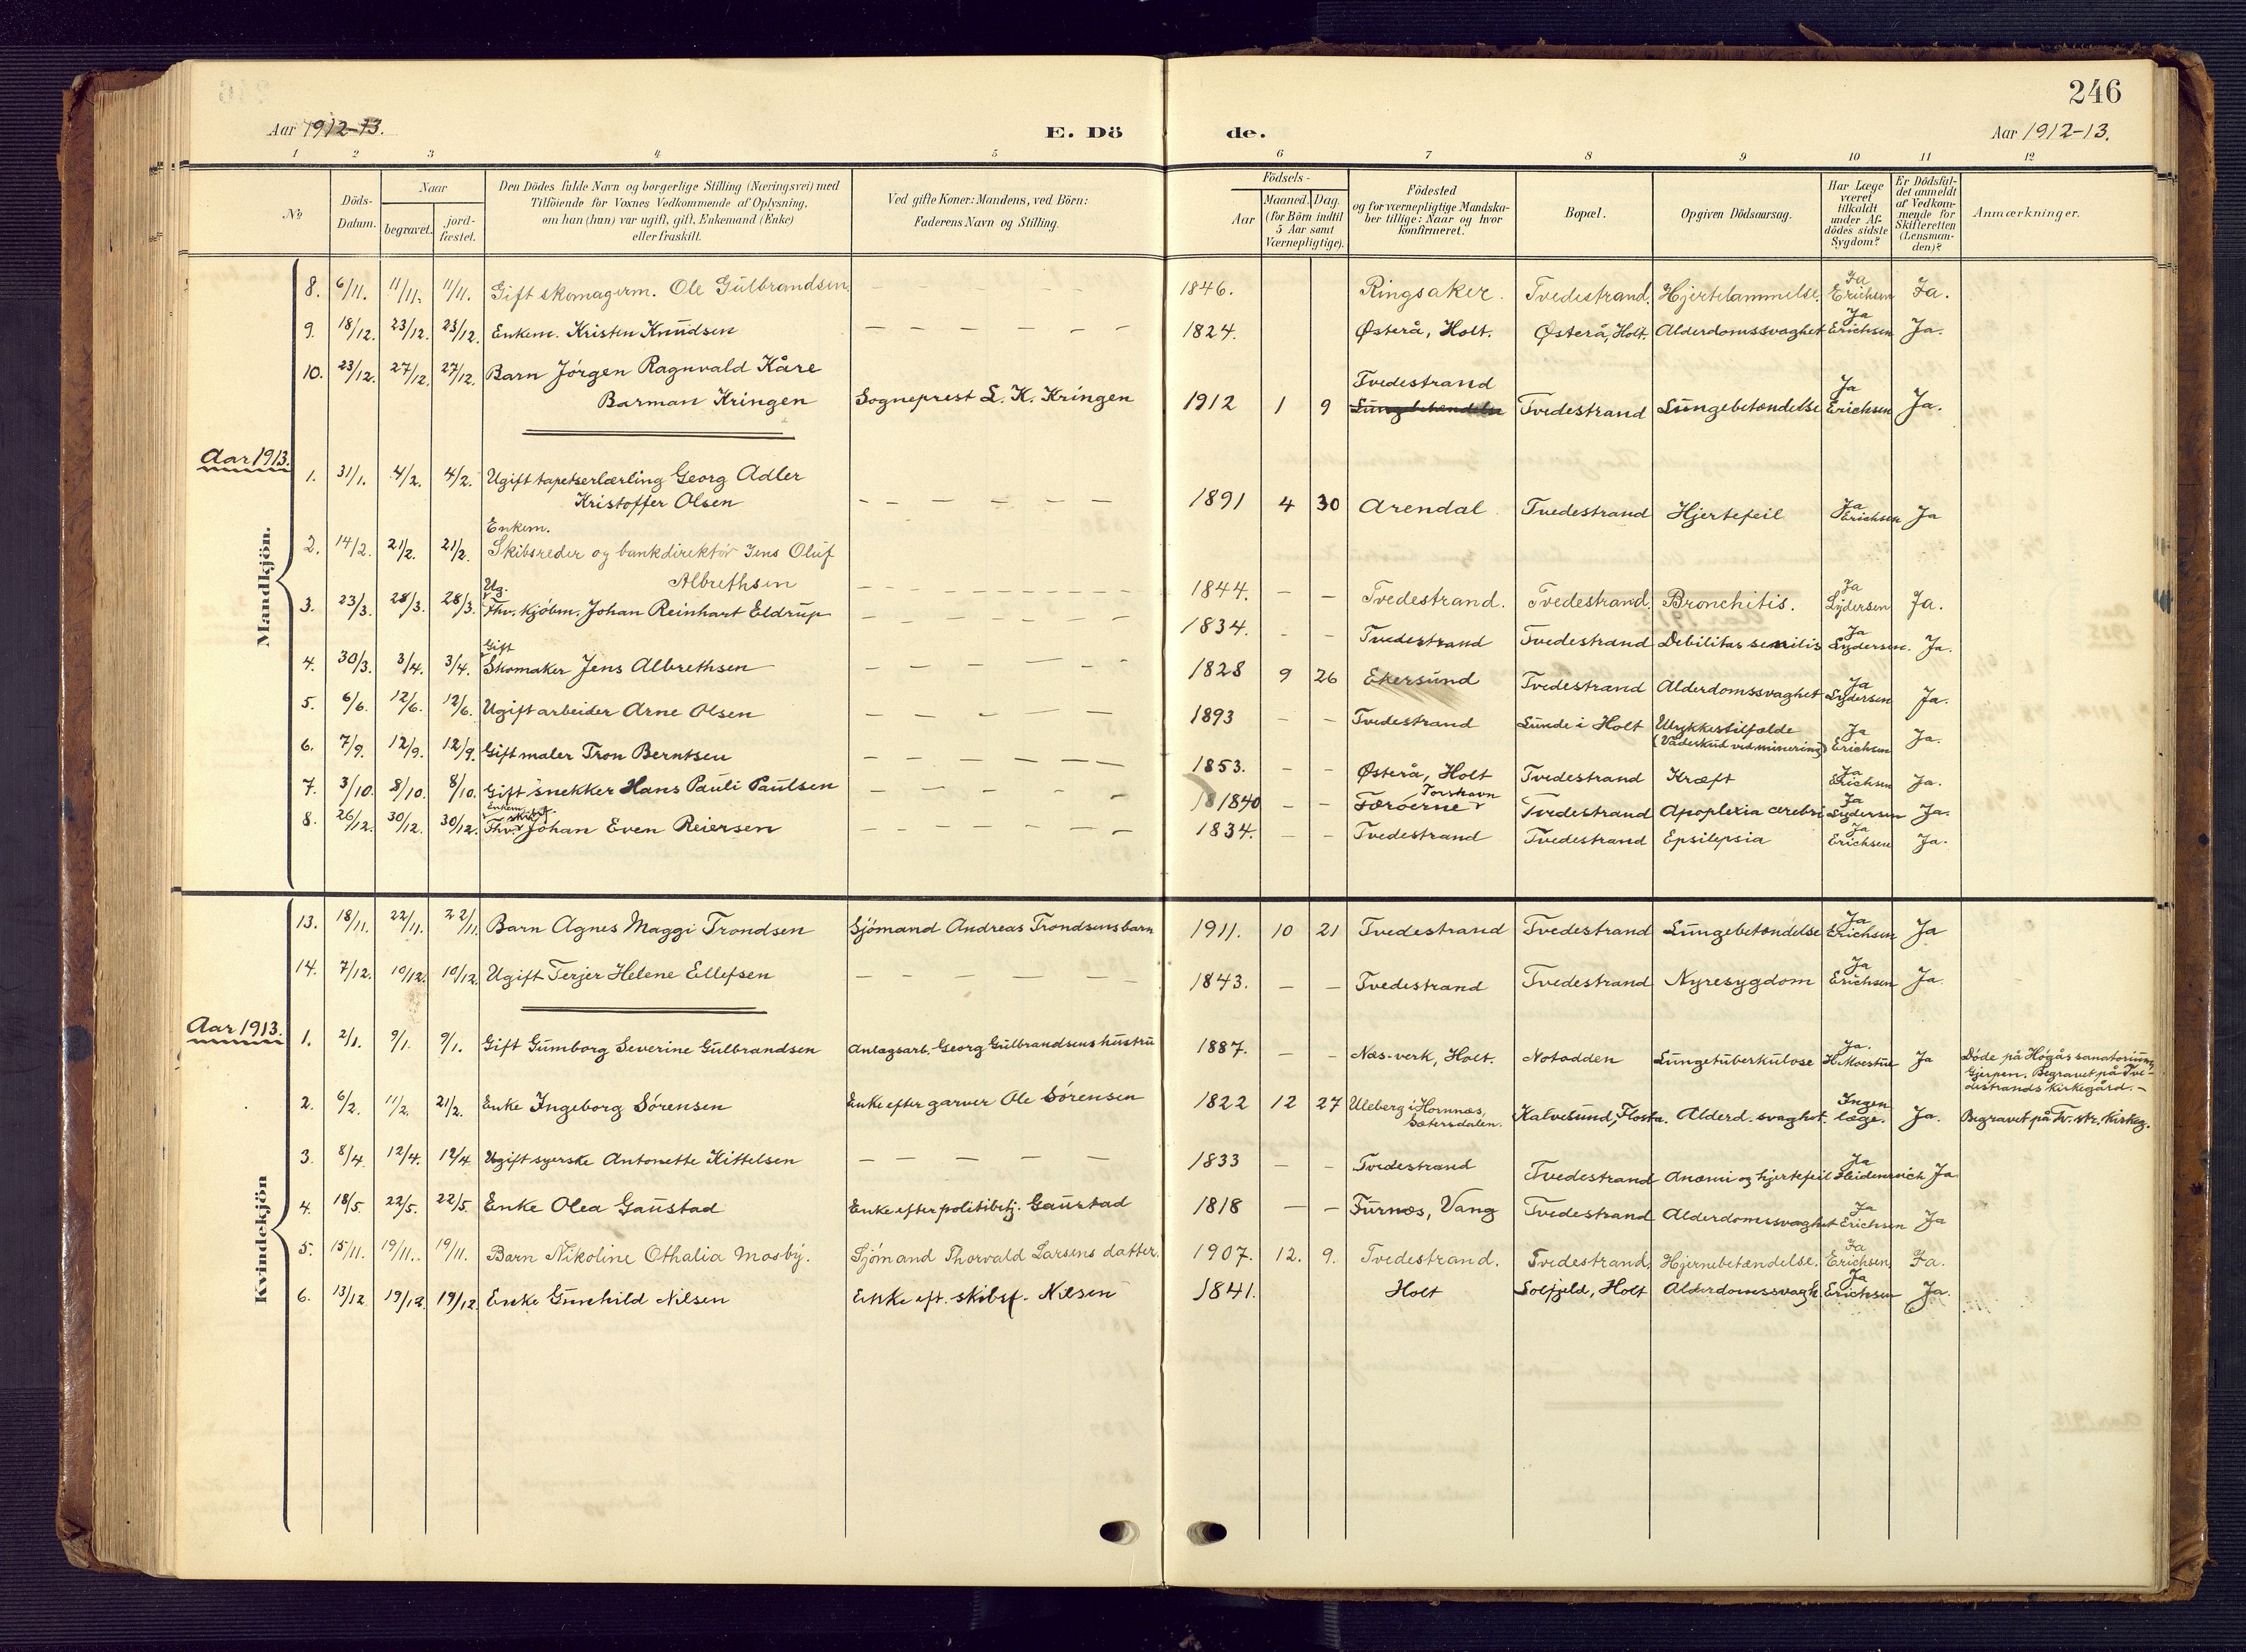 246
Aar 1912-13.
E. Dö de.
Aar 1912-13.
1 2 3 4 5 6 7 8 9 10 11 12
No
Döds-Datum.
Naar
begravet.
jord-fæstet.
Den Dödes fulde Navn og borgerlige Stilling (Næringsvei) med
Tilföiende for Voxnes Vedkommende af Oplysning,
om han (hun) var ugift, gift, Enkemand (Enke)
eller fraskilt.
Ved gifte Koner: Mandens, ved Börn:
Faderens Navn og Stilling.
Födsels-
Aar
Maaned. Dag.
(for Börn indtil
5 Aar samt
Værnepligtige).
Födested
og for værnepligtige Mandska-
ber tillige: Naar og hvor
konfirmeret.
Bopæl.
Opgiven Dödsaarsag.
Har Læge
været
tilkaldt
under Af-
dödes sidste
Sygdom?
Er Dödsfal-
det anmeldt
af Vedkom-
mende for
Skifteretten
(Lensman-
den)?
Anmærkninger.
Mandkjön.
8. 6/11. 11/11. 11/11. Gift skomagerm. Ole Gulbrandsen — — — — — 1846. Ringsaker. Tvedestrand. Hjertelammelse. Ja Erichsen Ja.
9. 18/12. 23/12. 23/12. Enkem. Kristen Knudsen — — — — — — 1824. Østerå, Holt. Østerå, Holt. Alderdomssvaghet Ja Erichsen Ja.
10. 23/12. 27/12. 27/12. Barn Jörgen Ragnvald Kåre
Barman Kringen Sogneprest L. K. Kringen 1912 1 9 Tvedestrand Lungebetendelse Tvedestrand Lungebetændelse Ja Erichsen Ja.
Aar 1913.
1. 31/1. 4/2. 4/2. Ugift tapetserlærling Georg Adler
Kristoffer Olsen — — — — — — 1891 4 30 Arendal Tvedestrand Hjertefeil Ja Erichsen Ja
2. 14/2. 21/2. 21/2. Enkem.
Skibsreder og bankdirektör Jens Oluf
Albrethsen — — — — — — — 1844. — — Tvedestrand. Tvedestrand. Bronchitis. Ja Lydersen Ja.
3. 23/3. 28/3. 28/3. Ug.
Fhv. kjöbm. Johan Reinhart Eldrup — — — — — — 1834. - - Tvedestrand Tvedestrand Debilitas senilis Ja Lydersen. Ja.
4. 30/3. 3/4. 3/4. Gift
Skomaker Jens Albrethsen — — — — — — 1828 9 26 Ekersund Tvedestrand Alderdomssvaghet Ja Lydersen Ja.
5. 6/6. 12/6. 12/6. Ugift arbeider Arne Olsen — — — — — 1893 — — Tvedestrand Lunde i Holt Ulykkestilfælde
(Vådeskud ved minering) Ja Erichsen Ja.
6. 7/9. 12/9. 12/9. Gift maler Tron Berntsen — — — — — — 1853. — — Østerå, Holt Tvedestrand Kræft Ja Erichsen Ja.
7. 3/10. 8/10. 8/10. Gift snekker Hans Pauli Paulsen — — — — — — 1840 — — Torshavn
Færöerne Tvedestrand Apoplexia cerebri Ja Lydersen Ja.
8. 26/12. 30/12. 30/12. Enkem. skibsf.
Fhv. Johan Even Reiersen — — — — — — 1834. — — Tvedestrand Tvedestrand Epsilepsia Ja Erichsen Ja.
Kvindekjön
13. 18/11. 22/11. 22/11. Barn Agnes Maggi Trondsen Sjömand Andreas Trondsens barn 1911. 10 21 Tvedestrand Tvedestrand Lungebetændelse Ja Erichsen Ja
14. 7/12. 10/12. 10/12. Ugift Terjer Helene Ellefsen — — — — — — 1843. — — Tvedestrand Tvedestrand Nyresygdom Ja Erichsen Ja.
Aar 1913.
1. 2/1. 9/1. 9/1. Gift Gumborg Severine Gulbrandsen Anlagsarb. Georg Gulbrandsens hustru 1887. — — Næs-verk, Holt. Notodden Lungetuberkulose Ja. Ja Döde på Högås sanatorium,
Gjerpen. Begravet på Tve-
destrands kirkegård. —
2. 6/2. 11/2. 21/2. Enke Ingeborg Sörensen Enke efter garver Ole Sörensen 1822 12 27 Uleberg i Hornnæs,
Sætersdalen. Kalvesund, Flosta. Alderd. svaghet. Ingen læge. Ja. Begravet på Tv. str. kirkeg.
3. 8/4. 12/4. 12/4 Ugift syerske Antonette Kittelsen — — — — — 1833 — — Tvedestrand Tvedestrand Anæmi og hjertefeil Ja Heidenreich Ja
4. 18/5. 22/5. 22/5. Enke Olea Gaustad Enke efter politibetj. Gaustad 1818 — — Furnæs, Vang Tvedestrand Alderdomssvaghet Ja Erichsen Ja
5. 15/11. 19/11. 19/11. Barn Nikoline Othalia Mosby. Sjömand Thorvald Larsens datter. 1907. 12. 9. Tvedestrand. Tvedestrand. Hjernebetændelse. Ja Erichsen. Ja.
6. 13/12. 19/12. 19/12. Enke Gunhild Nilsen Enke eft. skibsf. Nilsen 1841. Holt Solfjeld, Holt Alderdomssvagh. Ja Erichsen Ja.